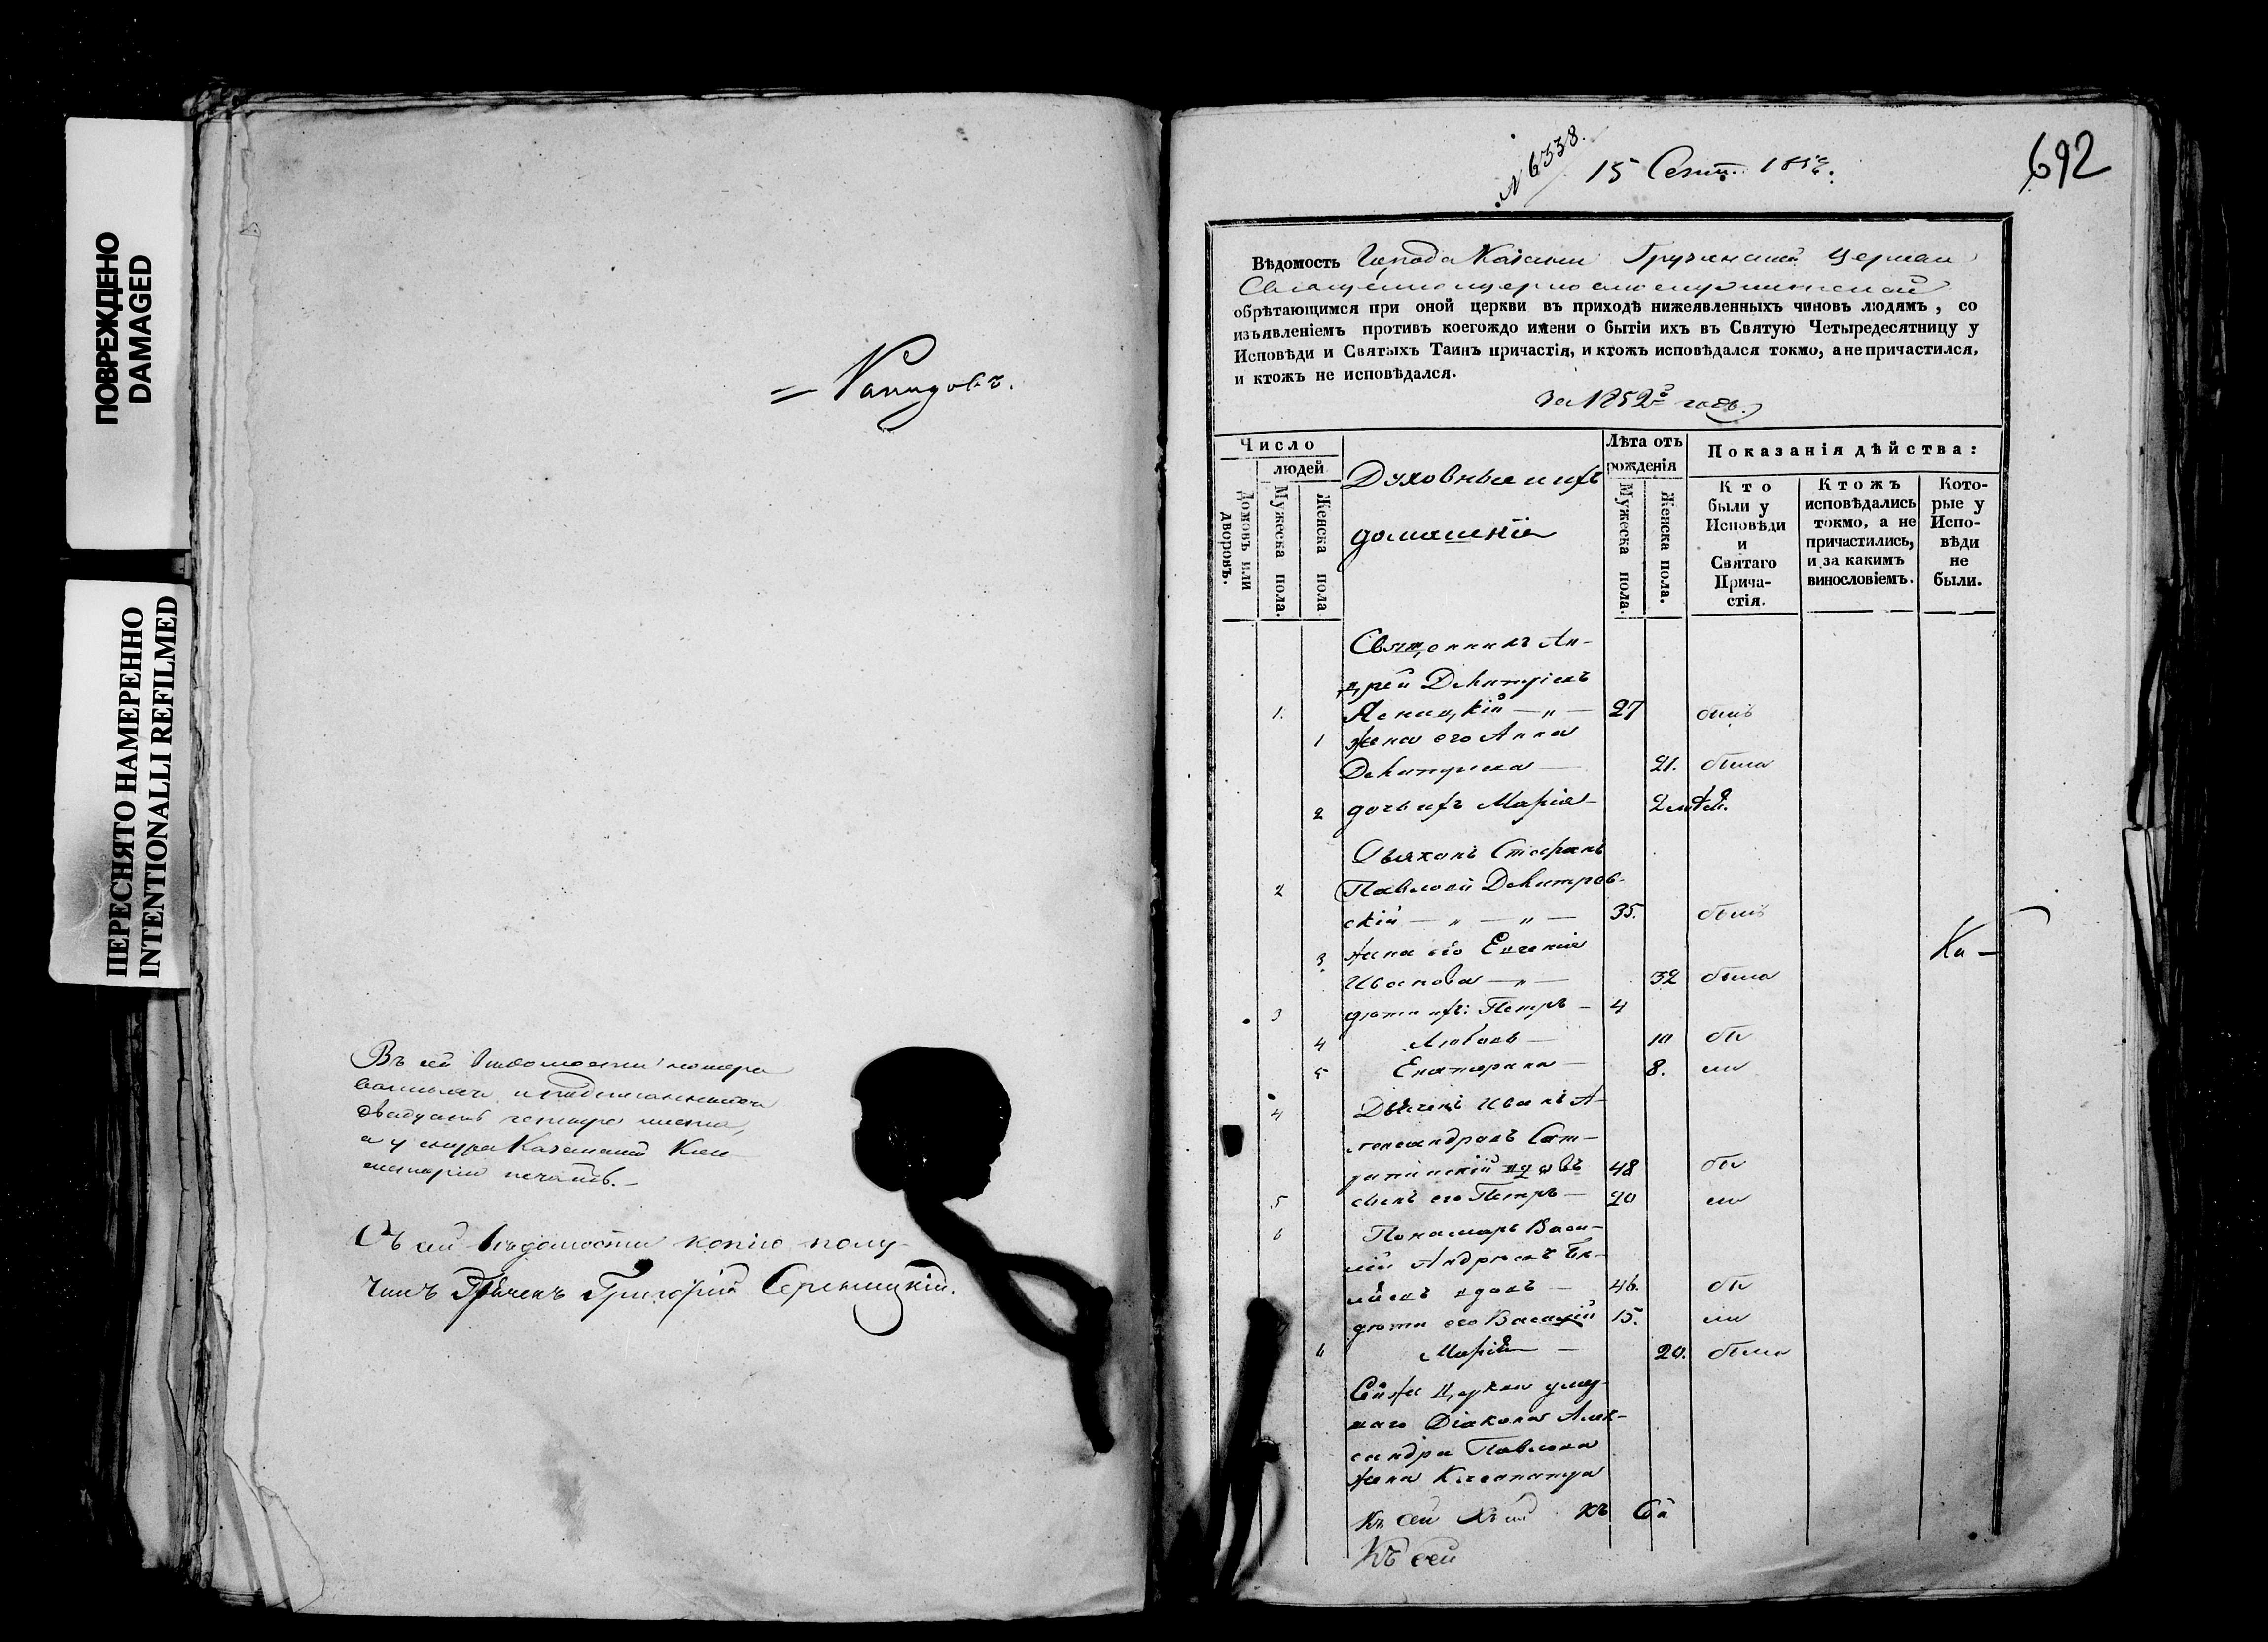 ПОВРЕЖДЕНО
DAMAGED
ПЕРЕСНЯТО НАМЕРЕННО
INTENTIONALLI REFILMED
Въ сей ведомости номера
двадцать четыре листа,
а у шнура Казанской Кон-
систоріи печать.
Съ сей ведомости копію полу-
чилъ Григорій
№ 6538.
15 Сент.
692
Вѣдомость Города Казани Грузинской церкви
обрѣтающимся при оной церкви въ приходѣ нижеявленныхъ чиновъ людямъ, со
изъявленіемъ противъ коегождо имени о бытіи ихъ въ Святую Четыредесятницу у
Исповѣди и Святыхъ Таинъ причастія, и ктожъ исповѣдался токмо, а не причастился,
и ктожъ не исповѣдался.
За 1852й годъ.
Число
людей
Домовъ или дворовъ.
Мужеска пола.
Женска пола
Духовные и ихъ
домашніе
Лѣта отъ
рожденія
Мужеска пола.
Женска пола.
Показанія дѣйства:
Кто
были у
Исповѣди
и
Святаго
Прича-
стія.
Ктожъ
исповѣдались
токмо, а не
причастились,
и за какимъ
винословіемъ.
Кото-
рые у
Испо-
вѣди
не
были.
Священникъ Ан-
дрей Димитріевъ
1. Ясницкій — „ — 27 былъ
1 жена его Анна
Димитріева — 21. была
2 дочь ихъ Марія — 2
Дьяконъ Стефанъ
2 Павловъ Димитров-
скій — „ — „ — 35. былъ
3. жена его Евгенія
Иванова — „ — 32 была
3 дѣти ихъ: Петръ — 4
4 Любовь — 10 бы
5 Екатерина — 8. ли
4 Дьячекъ Иванъ А-
лександровъ
вдовъ 48 бы
5 сынъ его Петръ — 20 ли
6 Пономарь Васи-
лій Андреевъ
вдовъ — 46. бы
7 дѣти его Василій 15. ли
6 Марія — 20. была
Сейже церкви умер-
шаго Діакона Алек-
сандра Павлова
жена
Къ сей Къ
Къ сей
Ка —